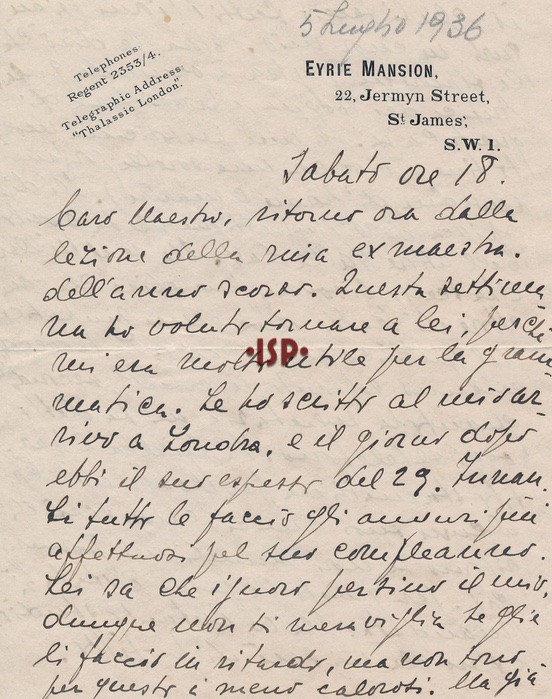 5 Luglio 1936
Telephones:
Regent 2353/4.
Telegraphic Address:
"Thalassic London."
EYRIE MANSION,
22, Jermyn Street,
St James',
S.W.1.
Sabato ore 18.
Caro Maestro, ritorno ora dalla
lezione della mia ex maestra.
dell'anno scorso. Questa settima
na ho voluto tornare a lei, perchè
mi era molto utile per la gram
matica. Le ho scritto al mio ar-
rivo a Londra, e il giorno dopo
ebbi il suo espresso del 29. Innan.
zi tutto le faccio gli auguri più
affettuosi pel suo compleanno.
Lei sa che ignoro persino il mio,
dunque non si meraviglia se glie
li faccio in ritardo, ma non sono
per questo i meno calorosi. Ma già
·ISP·